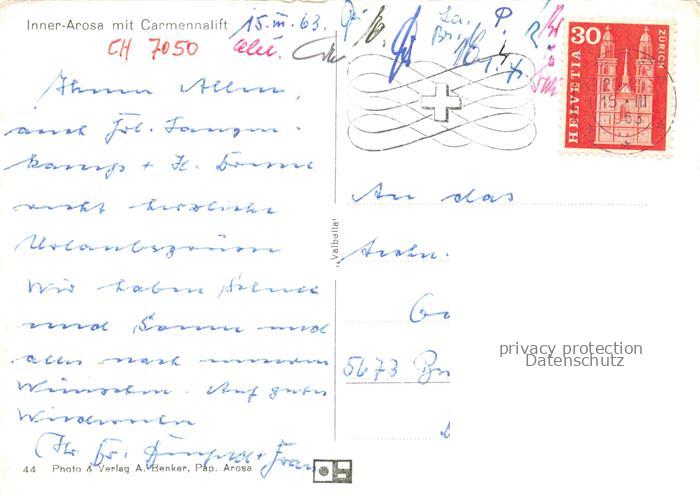 Inner-Arosa mit Carmennalift
15. III. 63.
CH 7050
30
HELVETIA
ZÜRICH
15.-III
1963
Ihnen Allen,
auch Frl. Langen-
kamp + H.
recht herzliche
Urlaubsgrüsse
Wir haben Schnee
und Sonne und
alles nach unseren
Wünschen. Auf gutes
Wiedersehn
Ihr + Frau
An das
5673
„Valbella"
privacy protection
Datenschutz
44 Photo & Verlag A. Benker, Pap. Arosa